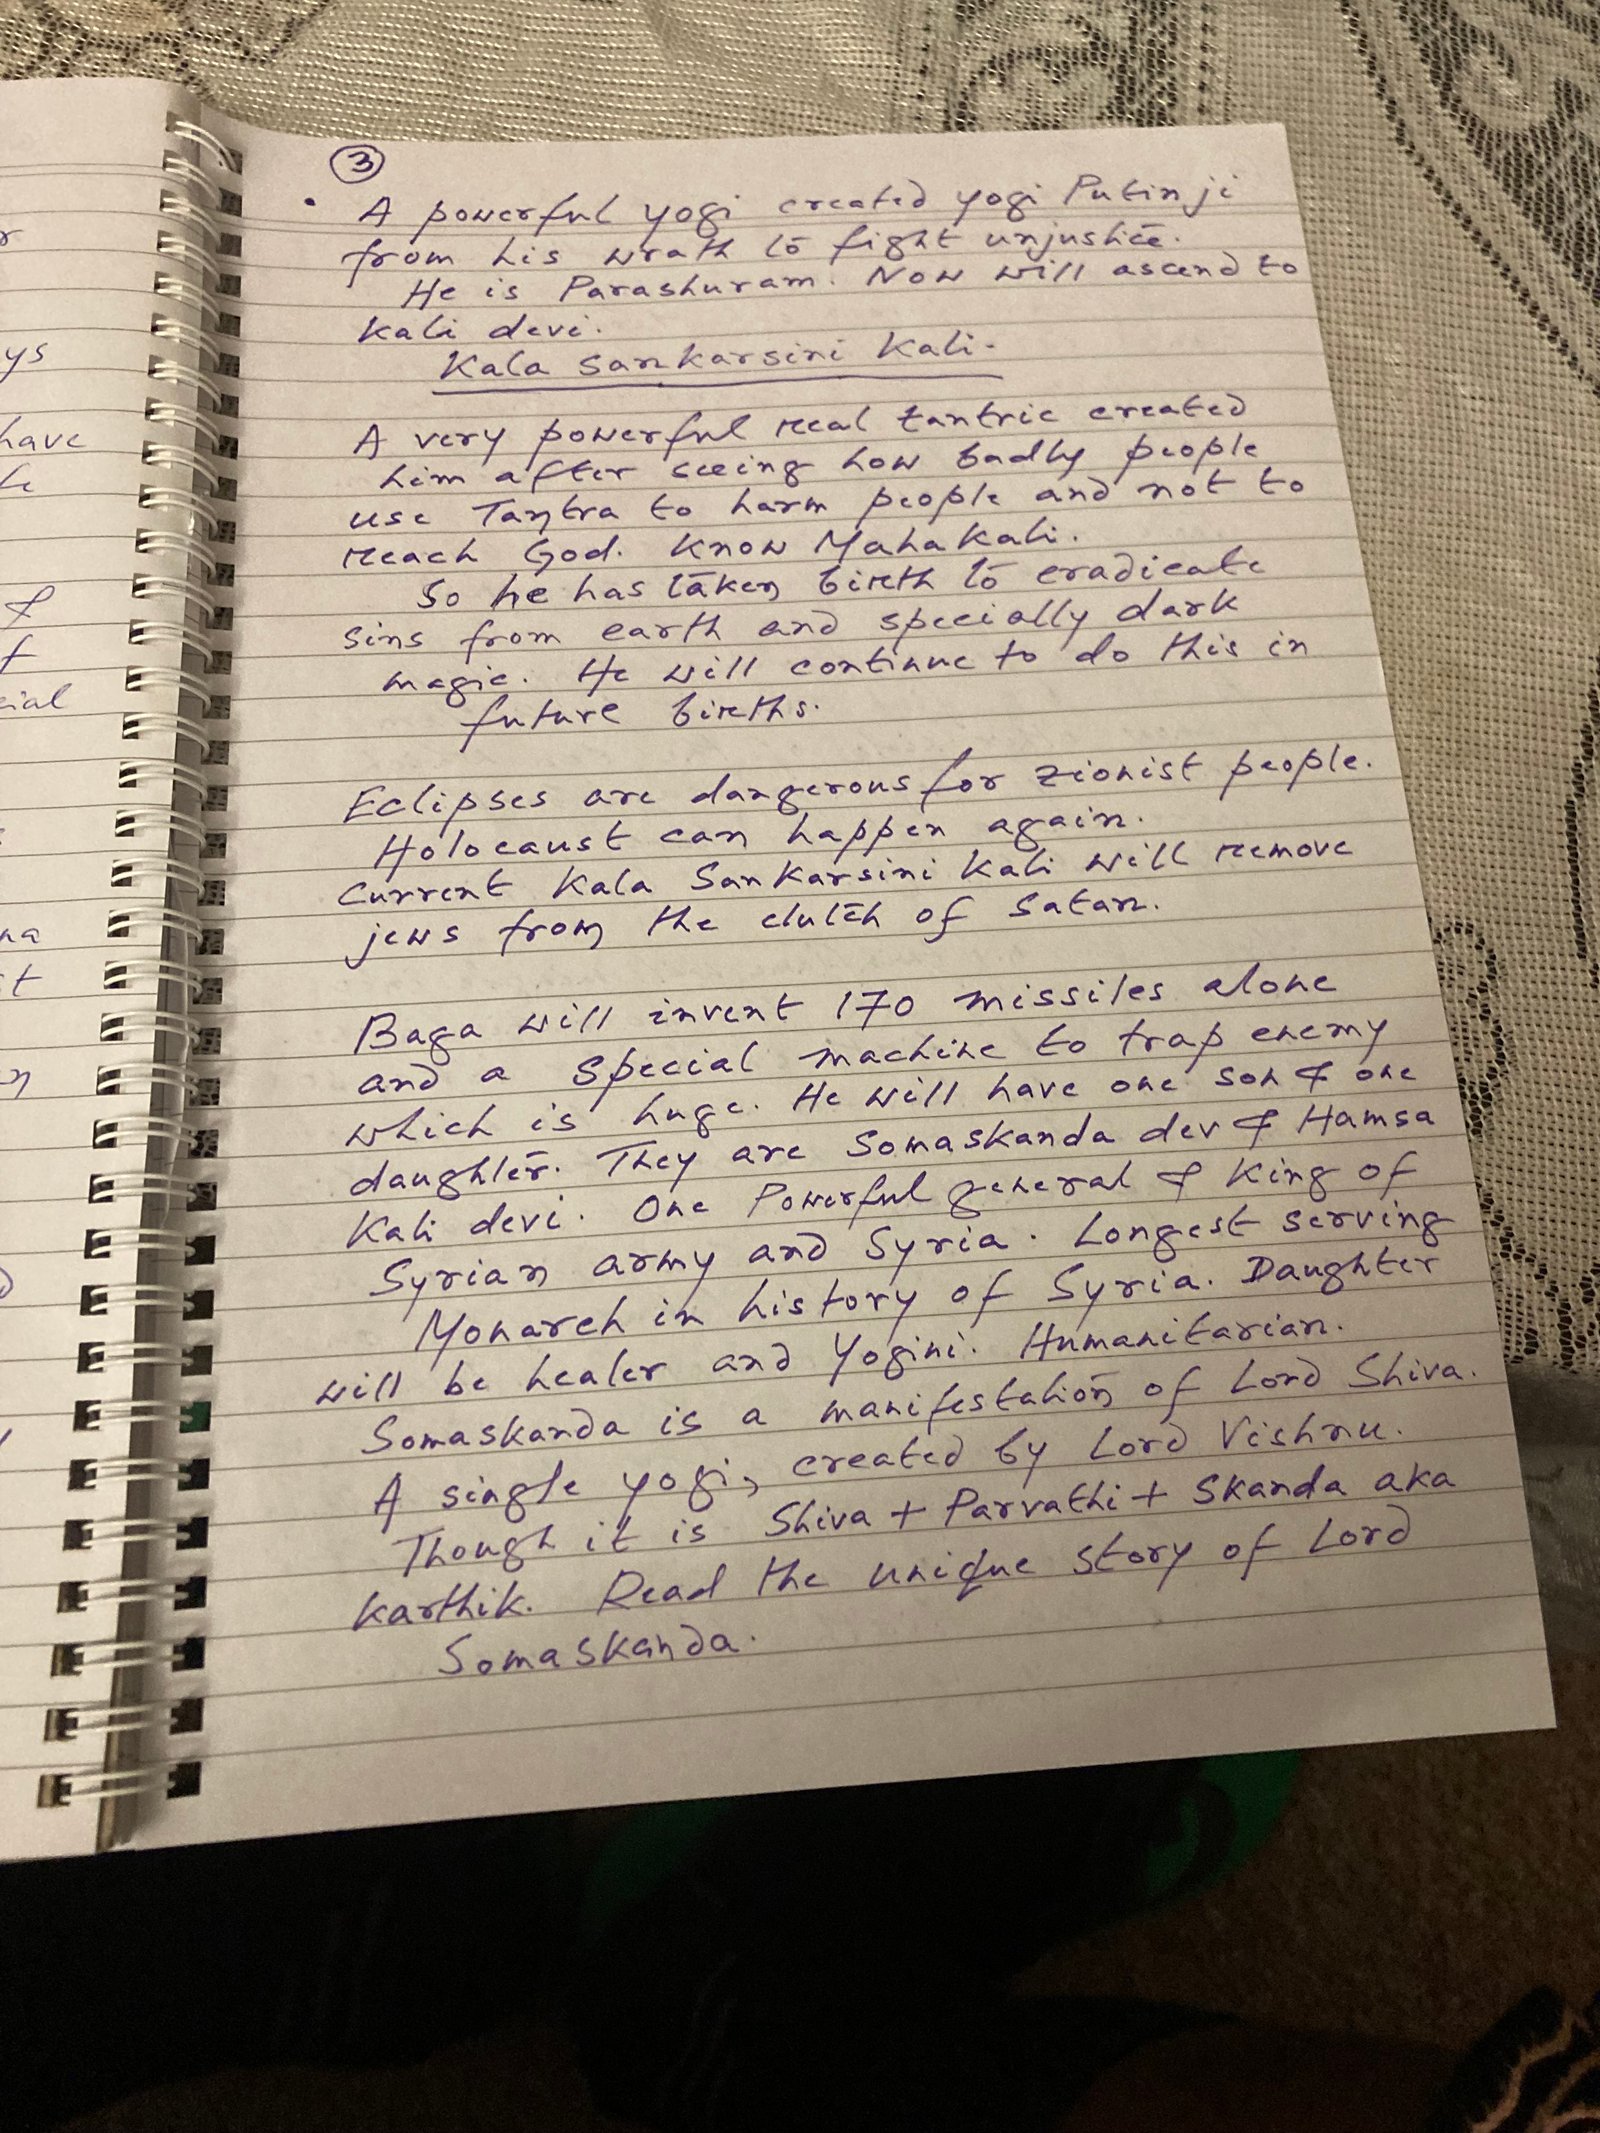 ③
• A powerful yogi created yogi Putin ji
from his wrath to fight unjustice.
He is Parashuram. Now will ascend to
Kali devi.
Kala Sankarsini Kali.
A very powerful real tantric created
him after seeing how badly people
use Tantra to harm people and not to
reach God. Know Mahakali.
So he has taken birth to eradicate
sins from earth and specially dark
magic. He will continue to do this in
future births.
Eclipses are dangerous for zionist people.
Holocaust can happen again.
Current Kala Sankarsini Kali will remove
jews from the clutch of Satan.
Baga will invent 170 missiles alone
and a special machine to trap enemy
which is huge. He will have one son & one
daughter. They are Somaskanda dev & Hamsa
Kali devi. One Powerful general & King of
Syrian army and Syria. Longest serving
Monarch in history of Syria. Daughter
will be healer and Yogini. Humanitarian.
Somaskanda is a manifestation of Lord Shiva.
A single yogi, created by Lord Vishnu.
Though it is Shiva + Parvathi + Skanda aka
Karthik. Read the unique story of Lord
Somaskanda.
ys
have
&
f
cial
na